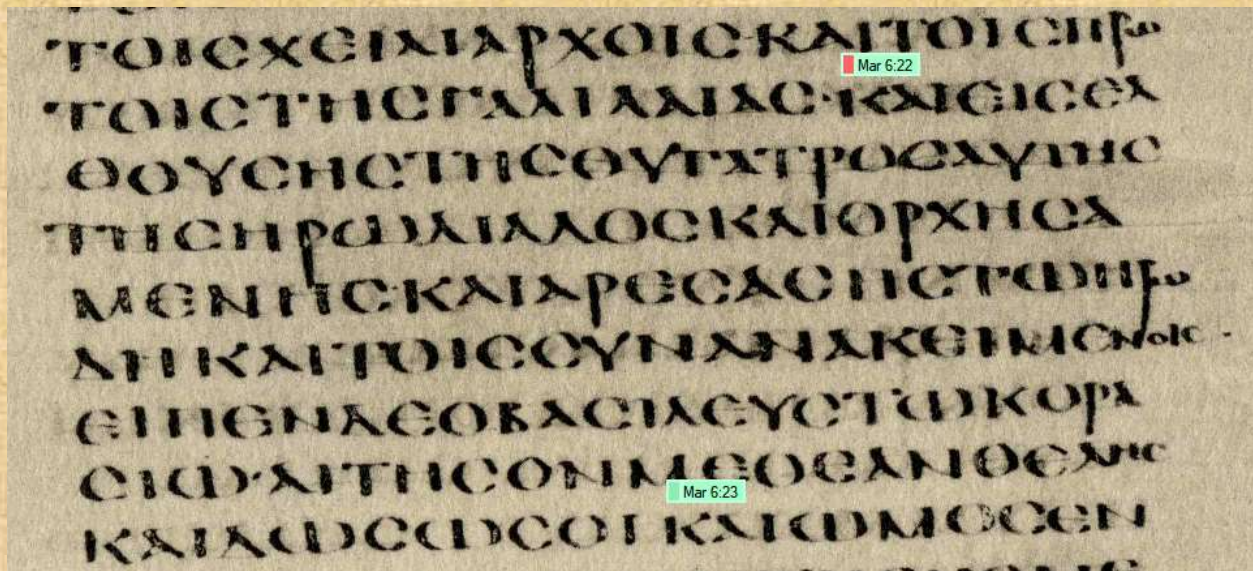 ΤΟΙϹΧΕΙΛΙΑΡΧΟΙϹ·ΚΑΙΤΟΙϹΠΡΩ
Mar 6:22
ΤΟΙϹΤΗϹΓΑΛΙΛΑΙΑϹ·ΚΑΙΕΙϹΕΛ
ΘΟΥϹΗϹΤΗϹΘΥΓΑΤΡΟϹΑΥΤΗϹ
ΤΗϹΗΡΩΔΙΑΔΟϹΚΑΙΟΡΧΗϹΑ
ΜΕΝΗϹ·ΚΑΙΑΡΕϹΑϹΗϹΤΩΗΡΩ
ΔΗΚΑΙΤΟΙϹϹΥΝΑΝΑΚΕΙΜΕΝΟΙϹ·
ΕΙΠΕΝΔΕΟΒΑϹΙΛΕΥϹΤΩΚΟΡΑ
ϹΙΩ·ΑΙΤΗϹΟΝΜΕΟΕΑΝΘΕΛΗϹ
Mar 6:23
ΚΑΙΔΩϹΩϹΟΙΚΑΙΩΜΟϹΕΝ